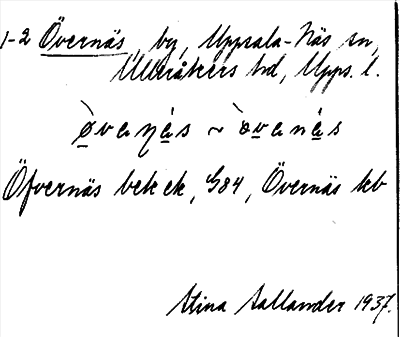 1-2 Övernäs, by, Uppsala-Näs sn,
Ulleråkers hd, Upps. l.
Öfvernäs bek ek, G84, Övernäs kb
Stina Aallander 1937.